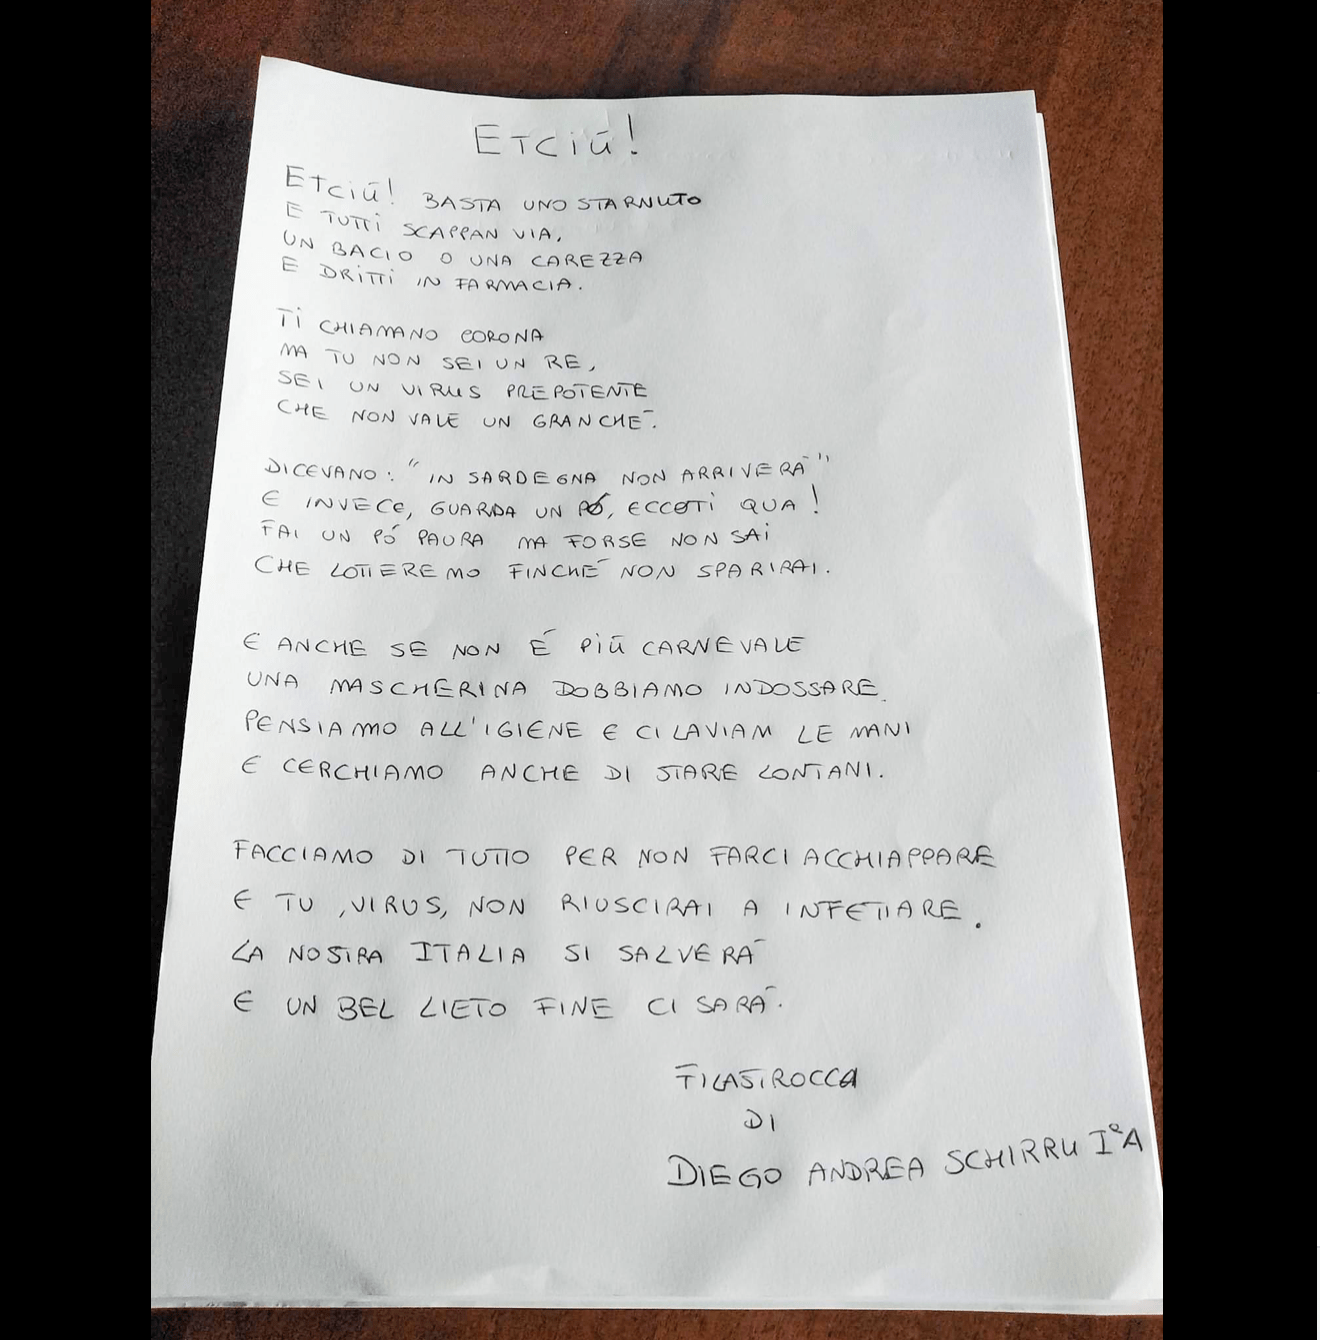 ETCIÚ!
ETCIÚ! BASTA UNO STARNUTO
E TUTTI SCAPPAN VIA,
UN BACIO O UNA CAREZZA
E DRITTI IN FARMACIA.
TI CHIAMANO CORONA
MA TU NON SEI UN RE,
SEI UN VIRUS PREPOTENTE
CHE NON VALE UN GRANCHÉ.
DICEVANO: "IN SARDEGNA NON ARRIVERÀ"
E INVECE, GUARDA UN PÓ, ECCOTI QUA!
FAI UN PÓ PAURA MA FORSE NON SAI
CHE LOTTEREMO FINCHÉ NON SPARIRAI.
E ANCHE SE NON É PIÚ CARNEVALE
UNA MASCHERINA DOBBIAMO INDOSSARE.
PENSIAMO ALL'IGIENE E CI LAVIAM LE MANI
E CERCHIAMO ANCHE DI STARE LONTANI.
FACCIAMO DI TUTTO PER NON FARCI ACCHIAPPARE
E TU, VIRUS, NON RIUSCIRAI A INFETTARE.
LA NOSTRA ITALIA SI SALVERÀ
E UN BEL LIETO FINE CI SARÀ.
FILASTROCCA
DI
DIEGO ANDREA SCHIRRU Iª A